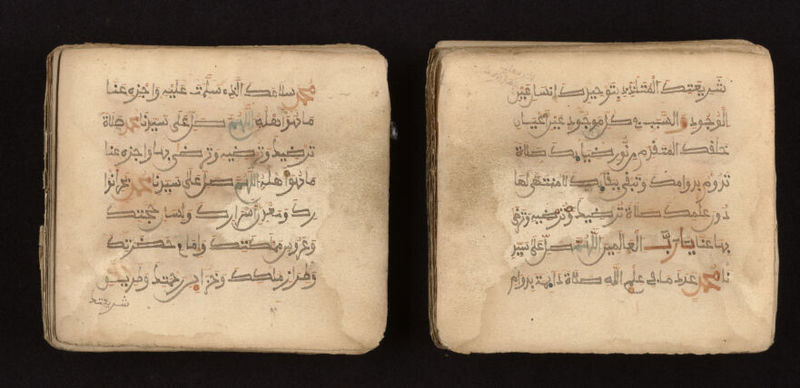 محمد سلامك الذي سلمت عليه واجزه عنا
ما هو اهله اللهم صل على سيدنا محمد صلاة
ترضيك وترضيه وترضى بها واجزه عنا
ما هو اهله اللهم صل على سيدنا محمد بحر انوا
رك ومعدن اسرارك ولسان حجتك
وعروس مملكتك وامام حضرتك
وطراز ملكك وخزاين رحمتك وطريق
شريعتك
شريعتك المتلذذ بتوحيدك انسان عين
الوجود والسبب في كل موجود عين اعيان
خلقك المتقدم من نور ضيايك صلاة
تدوم بدوامك وتبقى ببقايك لا منتهى لها
دون علمك صلاة ترضيك وترضيه وترضى
بها عنا يا رب العالمين اللهم صل على سيد
نا محمد عدد ما في علم الله صلاة دايمة بدوام